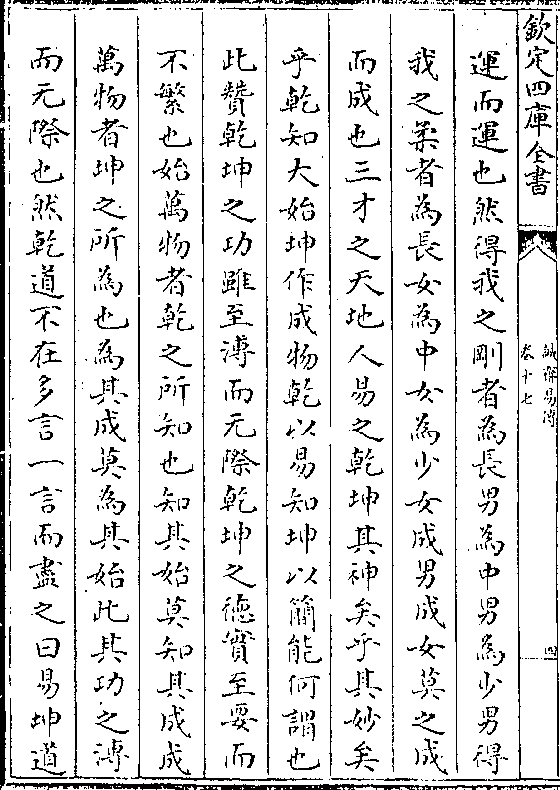 欽定四庫全書
誠齋易傳
卷十七
四
運而運也然得我之剛者為長男為中男為少男得
我之柔者為長女為中女為少女成男成女莫之成
而成也三才之天地人易之乾坤其神矣乎其妙矣
乎乾知大始坤作成物乾以易知坤以簡能何謂也
此贊乾坤之功雖至溥而无際乾坤之德實至要而
不繁也始萬物者乾之所知也知其始莫知其成成
萬物者坤之所為也為其成莫為其始此其功之溥
而无際也然乾道不在多言一言而盡之曰易坤道